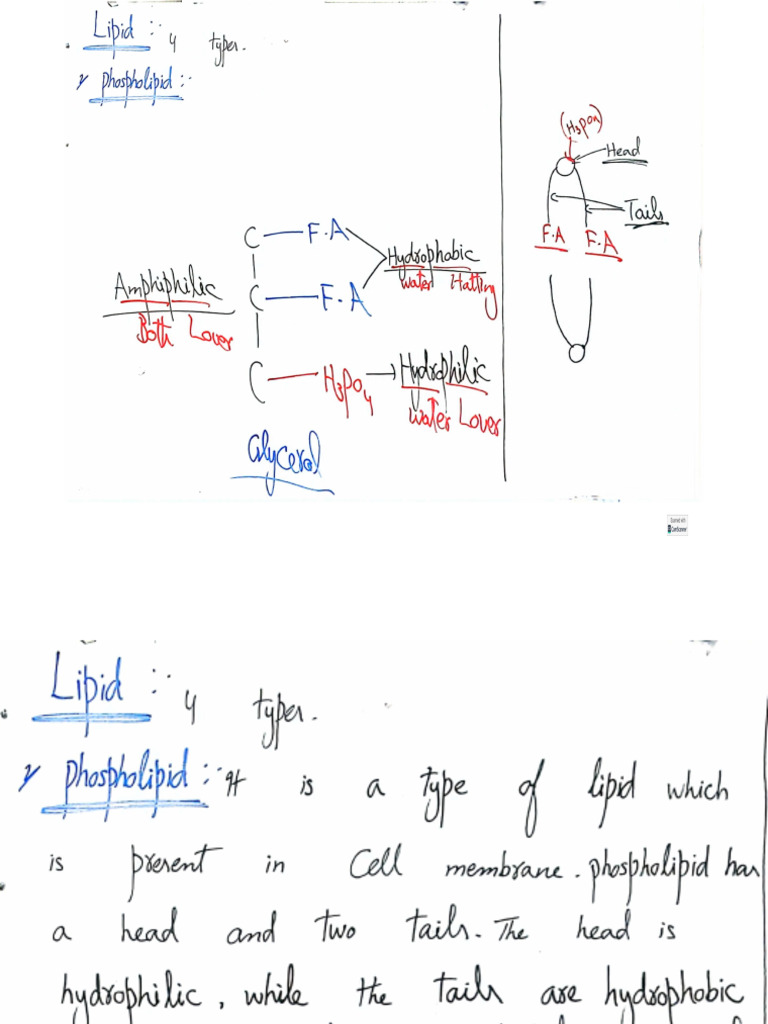 Lipid :: 4 types.
1/ phospholipid ::
(H3po4)
Head
Tails
F.A F.A
C — F.A
Hydrophabic
water Hatting
Amphiphilic
Both Lover
C — F.A
C — H3po4 → Hydrophilic
water Lover
Glycerol
Scanned with
CamScanner
Lipid :: 4 types.
1/ phospholipid :: It is a type of lipid which
is present in Cell membrane. phospholipid has
a head and two tails. The head is
hydrophilic, while the tails are hydrophobic